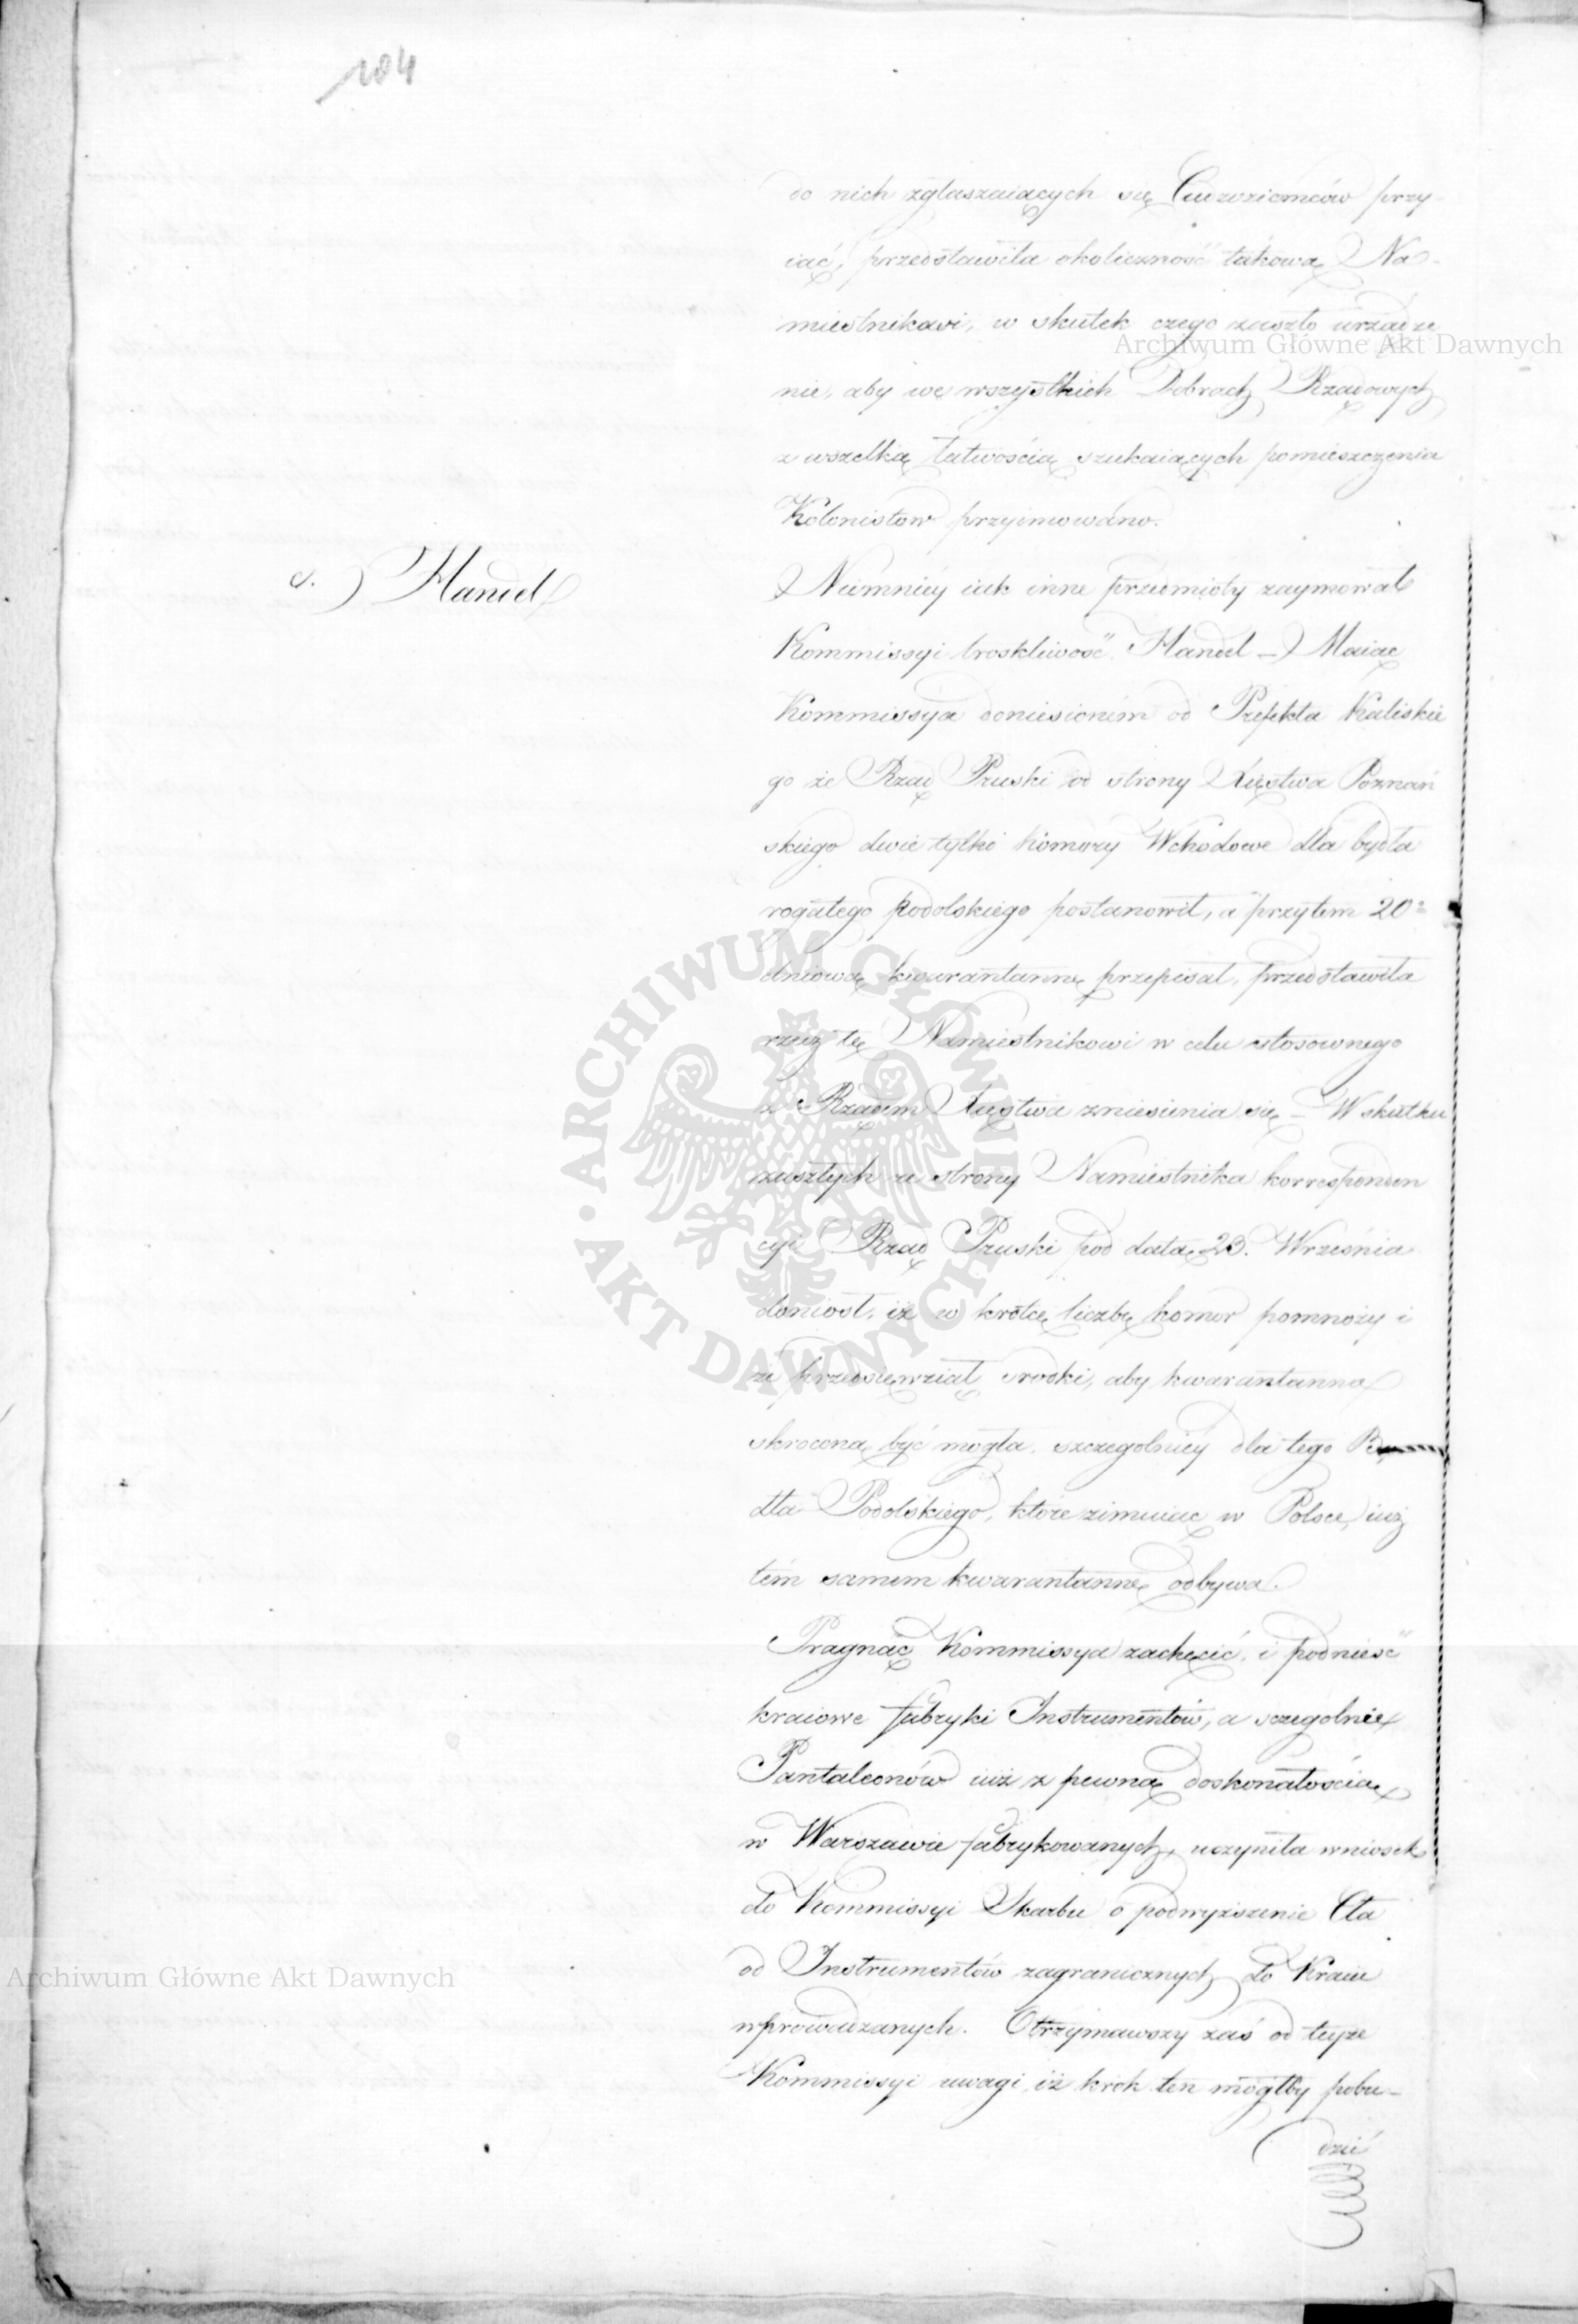 104
do nich zgłaszaiących się Cudzoziemców przy-
iąć, przedstawiła okoliczność takową Na-
miestnikowi, w skutek czego zaszło urządze
Archiwum Główne Akt Dawnych
nie, aby we wszystkich Dobrach Rządowych
z wszelką łatwością szukaiących pomieszczenia
Kolonistow przyimowano.
c.) Handel
Niemniéy iak inne przedmioty zaymował
Kommissyi troskliwość Handel – Maiąc
Kommissya doniesieném od Prefekta Kaliskie
go że Rząd Pruski od strony Xięstwa Poznań
skiego dwie tylko komory Wchodowe dla bydła
rogatego podolskiego postanowił, a przytem 20
dniową kwarantannę przepisał, przedstawiła
rzecz tę Namiestnikowi w celu stosownego
z Rządem Xięstwa zniesienia się – W skutku
zaszłych ze strony Namiestnika korresponden
cyi Rząd Pruski pod datą 23. Września
doniosł, iż w krótce liczbę komor pomnoży i
że przedsięwziął srodki, aby kwarantanna
skroconą być mogła, szczegolniéy dla tego By
dła Podolskiego, które zimuiąc w Polsce, iuż
tém samem kwarantannę odbywa.
Pragnąc Kommissya zachęcić, i podnieść
kraiowe fabryki Instrumentów, a sczegolnie
Pantaleonów iuż z pewną doskonałością
w Warszawie fabrykowanych, uczyniła wniosek
do Kommissyi Skarbu o podwyższenie Cła
od Instrumentów zagranicznych do Kraiu
wprowadzanych. Otrzymawszy zaś od teyże
Kommissyi uwagi, iż krok ten mógłby pobu-
dzić
Archiwum Główne Akt Dawnych
ARCHIWUM GŁÓWNE AKT DAWNYCH